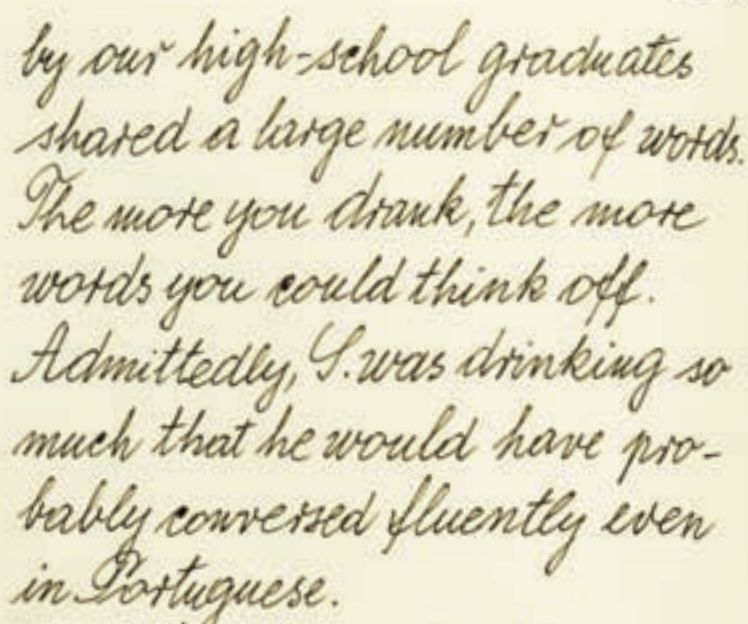 by our high-school graduates
shared a large number of words.
The more you drank, the more
words you could think off.
Admittedly, S. was drinking so
much that he would have pro-
bably conversed fluently even
in Portuguese.